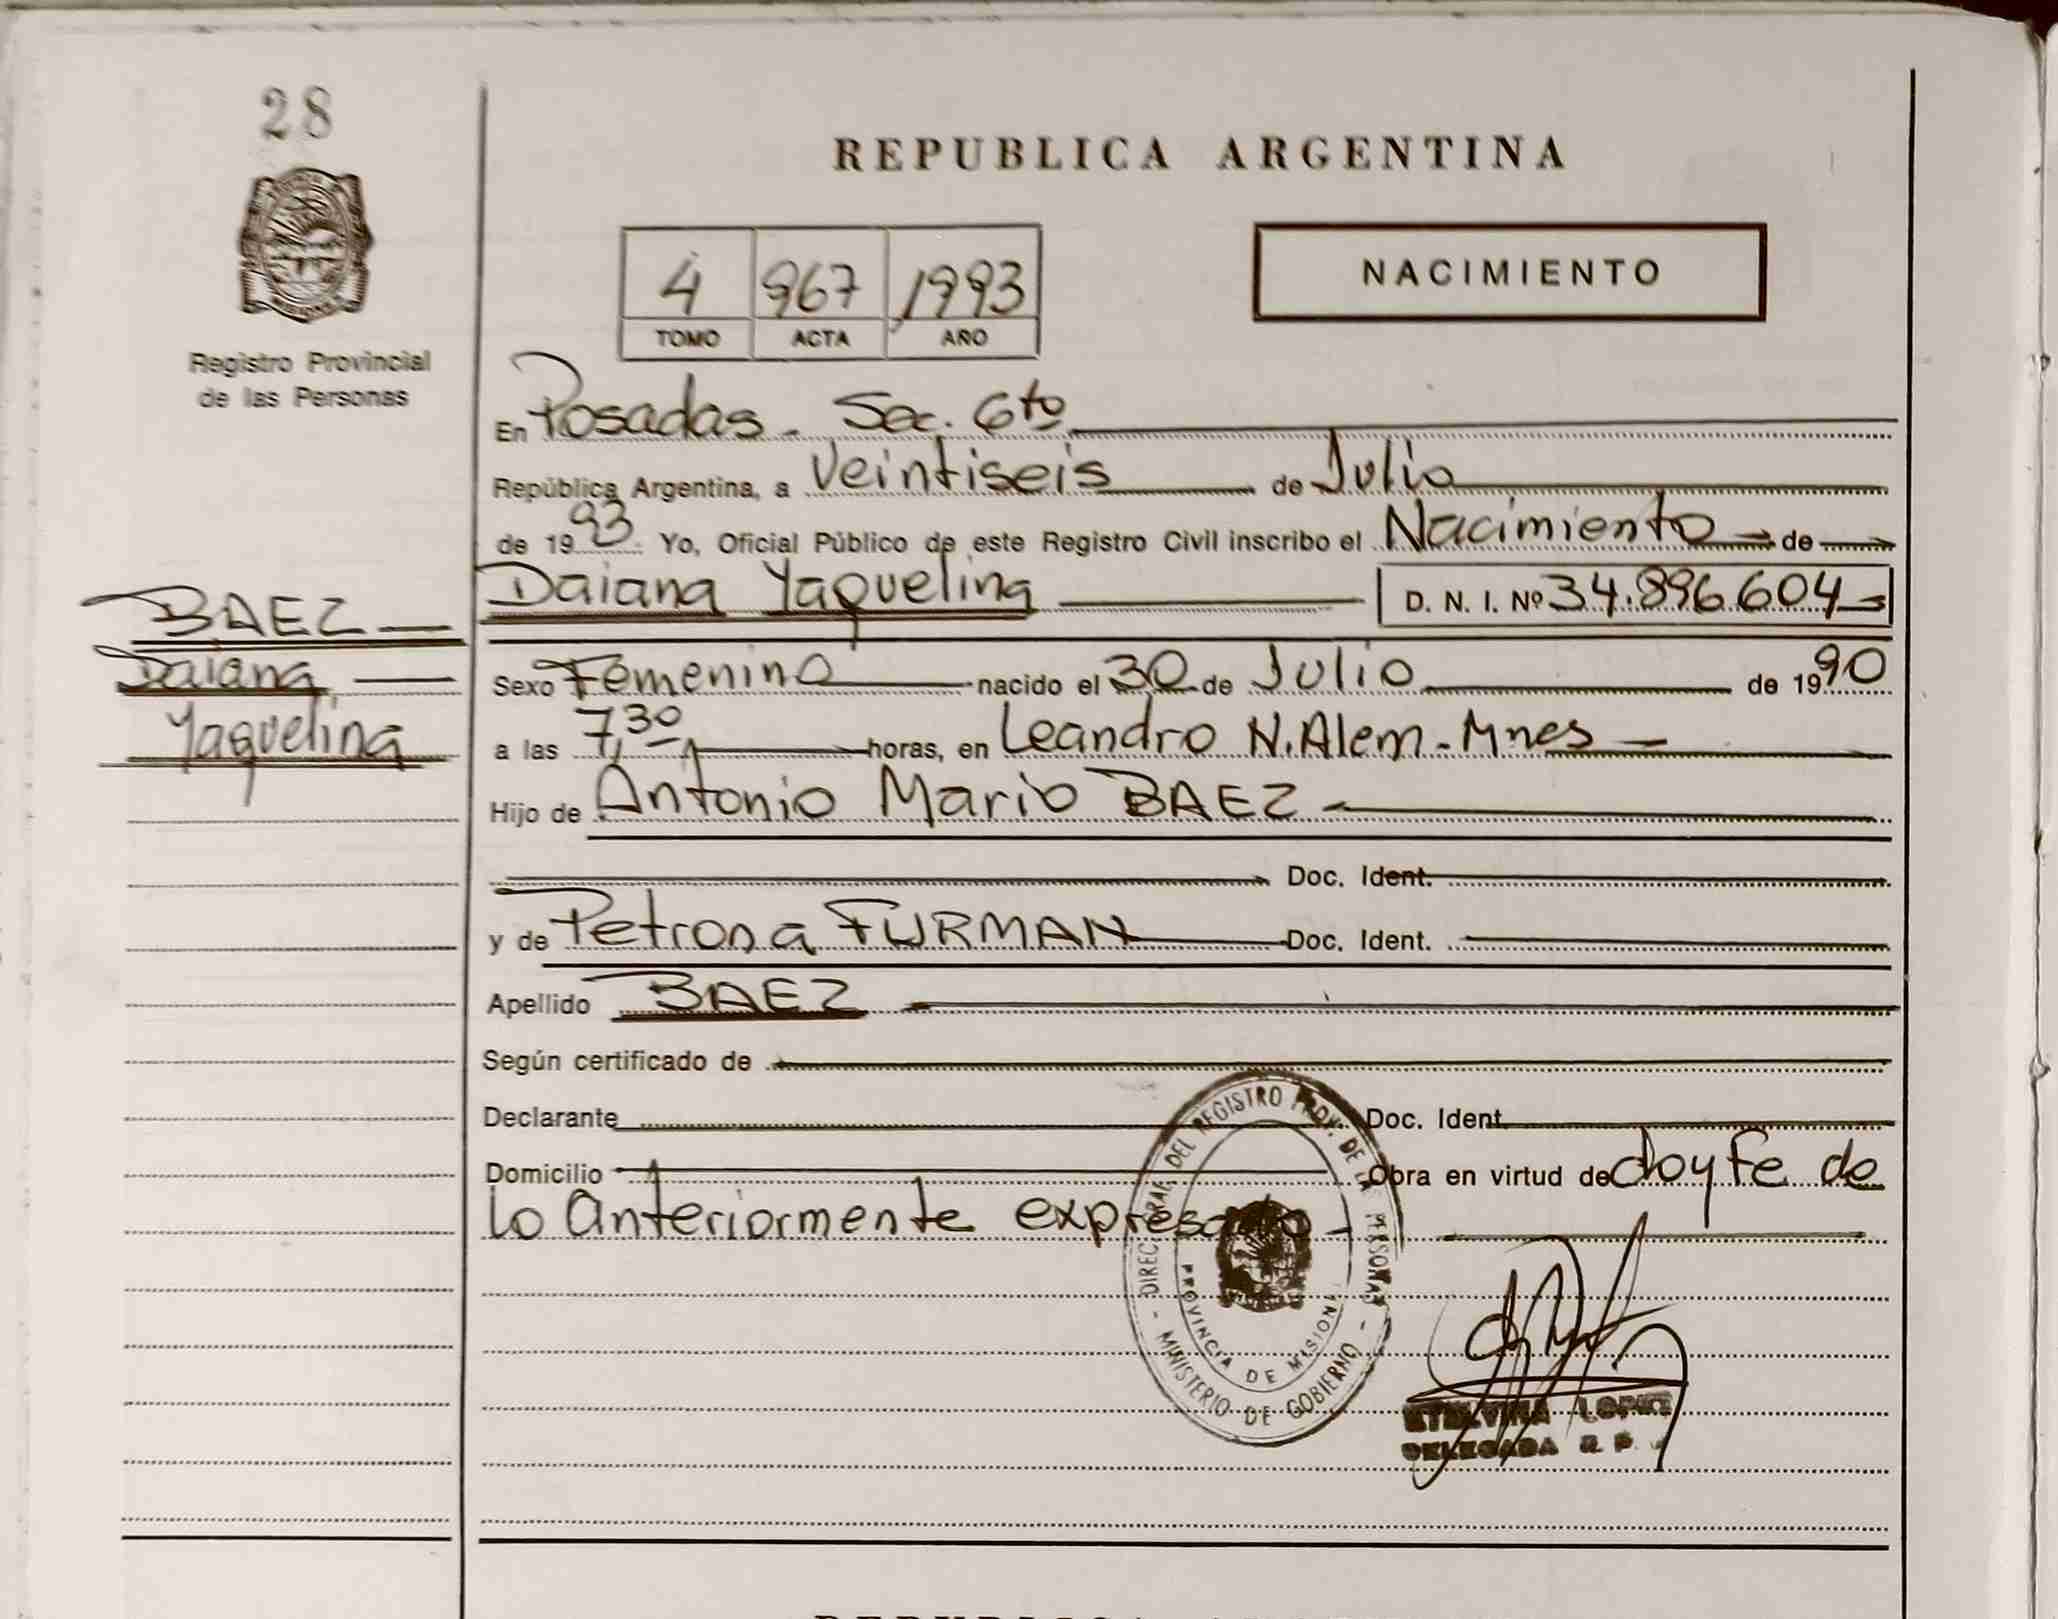 28
Registro Provincial
de las Personas
BAEZ
Daiana
Yaquelina
REPUBLICA ARGENTINA
4 967 1993
TOMO ACTA AÑO
NACIMIENTO
En Posadas - Sec. 6to
República Argentina, a Veintiseis de Julio
de 1993. Yo, Oficial Público de este Registro Civil inscribo el Nacimiento de
Daiana Yaquelina D. N. I. Nº 34.896.604
Sexo Femenino nacido el 30 de Julio de 1990
a las 7,30 horas, en Leandro N. Alem - Mnes
Hijo de Antonio Mario BAEZ
Doc. Ident.
y de Petrona FURMAN Doc. Ident.
Apellido BAEZ
Según certificado de
Declarante Doc. Ident.
Domicilio Obra en virtud de doy fe de
lo anteriormente expresado -
DEL REGISTRO PROV. DE LAS PERSONAS
PROVINCIA DE MISIONES
MINISTERIO DE GOBIERNO
ETELVINA LOPEZ
DELEGADA R. P.